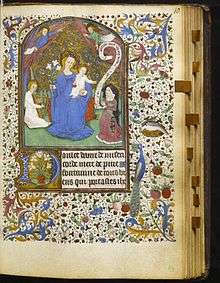 Doulce dame de miseri
corde mere de pitie
fontainne de tous bi
ens qui portastes ihu